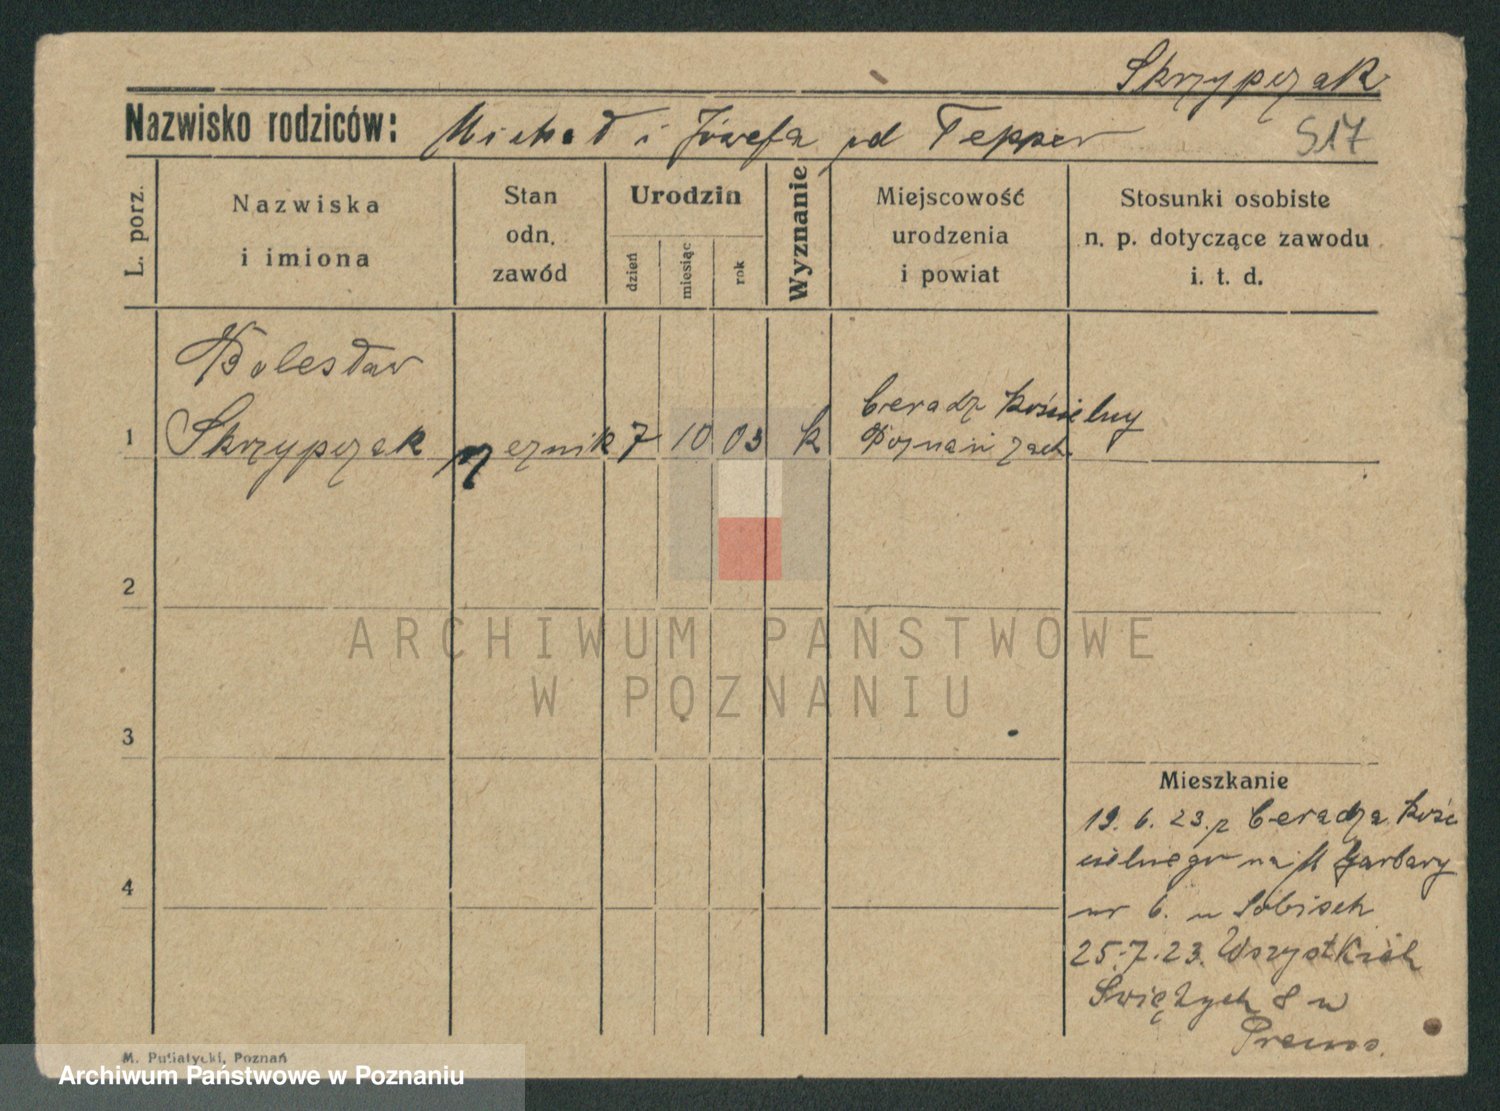 Skrzypczak
Nazwisko rodziców: Michał i Józefa od Tepper
S17
L. porz.
Nazwiska
i imiona
Stan
odn.
zawód
Urodzin
dzień
miesiąc
rok
Wyznanie
Miejscowość
urodzenia
i powiat
Stosunki osobiste
n. p. dotyczące zawodu
i. t. d.
Bolesław
1 Skrzypczak rzeznik 7 10 03 k
Ceradz Kościelny
Poznań zach.
2
3
4
Mieszkanie
19. 6. 23. z Ceradza Kość
cielnego na Garbary
nr 6. u Sobisch
25.7.23. Wszystkich
Świętych 8 u
ARCHIWUM PAŃSTWOWE
W POZNANIU
M. Putiatycki, Poznań
Archiwum Państwowe w Poznaniu